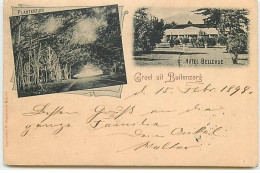 PLANTENTUIN
HOTEL BELLEVUE
Groet uit Buitenzorg
15 Febr. 1898.
Besten Gruß an die
ganze Familie
dein Onkel
Walter